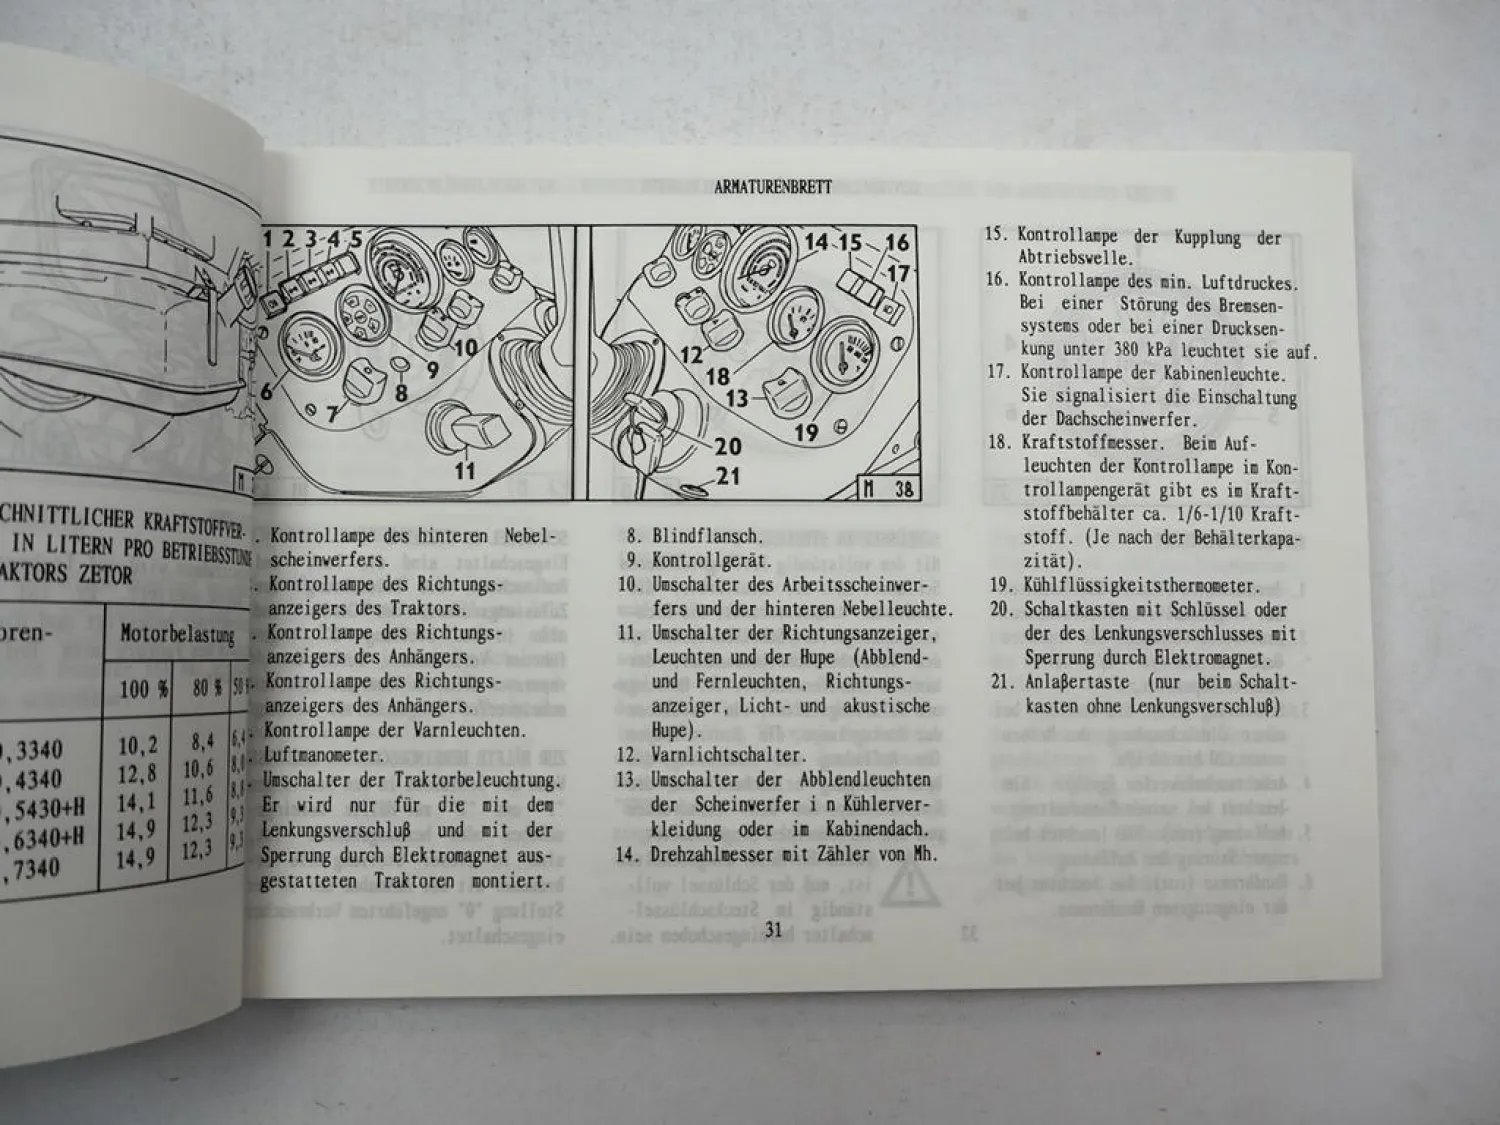 CHNITTLICHER KRAFTSTOFFVER-
IN LITERN PRO BETRIEBSSTUNDE
AKTORS ZETOR
oren-
Motorbelastung
100 % 80 % 50 %
,3340 10,2 8,4 6,4
,4340 12,8 10,6 8,0
,5430+H 14,1 11,6 8,8
,6340+H 14,9 12,3 9,3
,7340 14,9 12,3 9,3
M
ARMATURENBRETT
1 2 3 4 5
6
7
8
9
10
11
12
13
14 15 16
17
18
19
20
21
M 38
. Kontrollampe des hinteren Nebel-
scheinwerfers.
. Kontrollampe des Richtungs-
anzeigers des Traktors.
. Kontrollampe des Richtungs-
anzeigers des Anhängers.
. Kontrollampe des Richtungs-
anzeigers des Anhängers.
. Kontrollampe der Varnleuchten.
. Luftmanometer.
. Umschalter der Traktorbeleuchtung.
Er wird nur für die mit dem
Lenkungsverschluβ und mit der
Sperrung durch Elektromagnet aus-
gestatteten Traktoren montiert.
8. Blindflansch.
9. Kontrollgerät.
10. Umschalter des Arbeitsscheinwer-
fers und der hinteren Nebelleuchte.
11. Umschalter der Richtungsanzeiger,
Leuchten und der Hupe (Abblend-
und Fernleuchten, Richtungs-
anzeiger, Licht- und akustische
Hupe).
12. Varnlichtschalter.
13. Umschalter der Abblendleuchten
der Scheinwerfer i n Kühlerver-
kleidung oder im Kabinendach.
14. Drehzahlmesser mit Zähler von Mh.
15. Kontrollampe der Kupplung der
Abtriebswelle.
16. Kontrollampe des min. Luftdruckes.
Bei einer Störung des Bremsen-
systems oder bei einer Drucksen-
kung unter 380 kPa leuchtet sie auf.
17. Kontrollampe der Kabinenleuchte.
Sie signalisiert die Einschaltung
der Dachscheinwerfer.
18. Kraftstoffmesser. Beim Auf-
leuchten der Kontrollampe im Kon-
trollampengerät gibt es im Kraft-
stoffbehälter ca. 1/6-1/10 Kraft-
stoff. (Je nach der Behälterkapa-
zität).
19. Kühlflüssigkeitsthermometer.
20. Schaltkasten mit Schlüssel oder
der des Lenkungsverschlusses mit
Sperrung durch Elektromagnet.
21. Anlaβertaste (nur beim Schalt-
kasten ohne Lenkungsverschluβ)
31